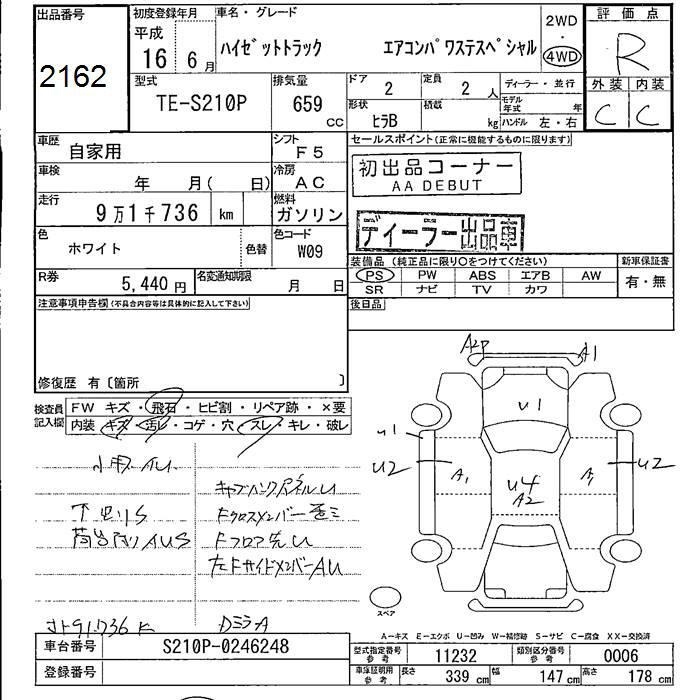 出品番号
2162
初度登録年月
平成
16 年 6 月
車名・グレード
ハイゼットトラック エアコンパワステスペシャル
2WD
・
4WD
評価点
R
外装 内装
C C
型式
TE-S210P
排気量
659 cc
ドア
2
定員
2 人
形状
ヒラB
積載
kg
ディーラー・並行
モデル年式 年
ハンドル 左・右
車歴
自家用
シフト
F5
セールスポイント(正常に機能するものに限ります)
初出品コーナー
AA DEBUT
ディーラー出品車
車検
年 月( 日)
冷房
AC
走行
9万1千736 km
燃料
ガソリン
色
ホワイト
色替
色コード
W09
装備品 (純正品に限り○をつけてください)
新車保証書
PS PW ABS エアB AW
有・無
SR ナビ TV カワ
R券
5,440 円
名変通知期限
月 日
後日品
注意事項申告欄(不具合内容等は具体的に記入して下さい)
修復歴 有〔箇所 〕
検査員記入欄
FW キズ・飛石・ヒビ割・リペア跡・×要
内装 キズ・汚レ・コゲ・穴・スレ・キレ・破レ
下回りS
Fクロスメンバー
Fフロア
左FサイドメンバーAU
DミラA
A2P
A1
U1
U1
U2
A1
U4
A2
U2
スペア
A−キズ E−エクボ U−凹み W−補修跡 S−サビ C−腐食 XX−交換済
車台番号
S210P-0246248
登録番号
型式指定番号
参考
11232
類別区分番号
参考
0006
車庫証明用
参考
長さ 339 cm 幅 147 cm 高さ 178 cm